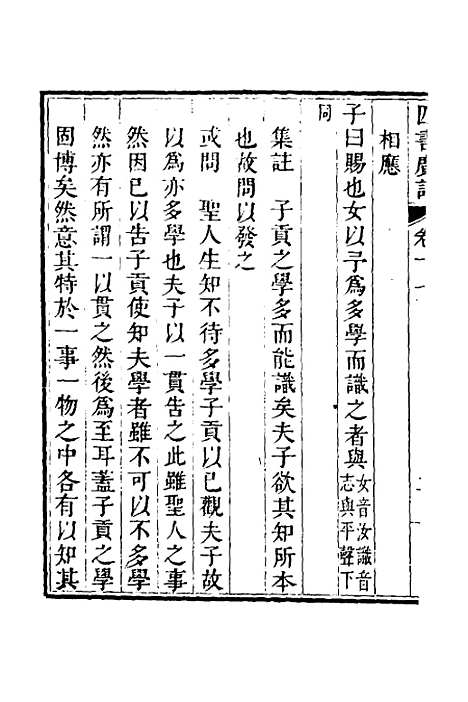 四書
卷十
相應
子曰賜也女以予爲多學而識之者與女音汝識音志與平聲下
同
集註　子貢之學多而能識矣夫子欲其知所本
也故問以發之
或問　聖人生知不待多學子貢以已觀夫子故
以爲亦多學也夫子以一貫告之此雖聖人之事
然因已以告子貢使知夫學者雖不可以不多學
然亦有所謂一以貫之然後爲至耳蓋子貢之學
固博矣然意其特於一事一物之中各有以知其